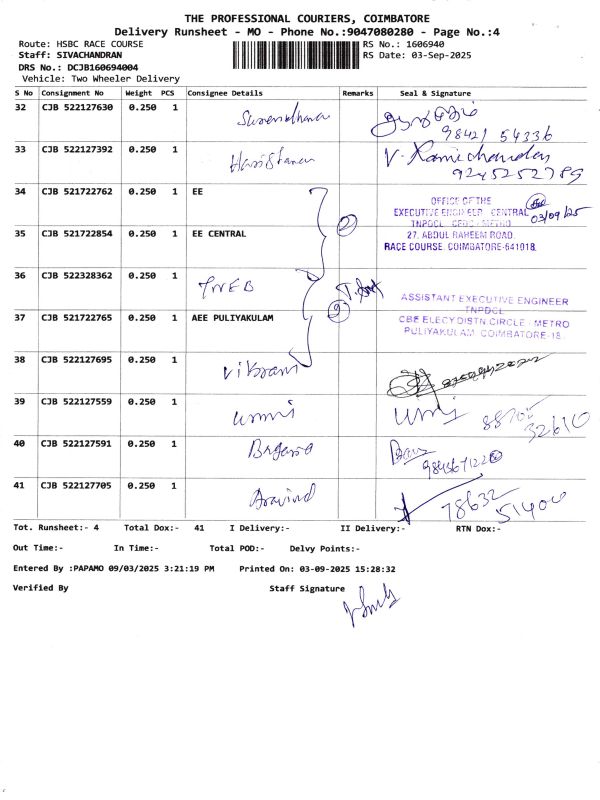 THE PROFESSIONAL COURIERS, COIMBATORE
Delivery Runsheet - MO - Phone No.:9047080280 - Page No.:4
Route: HSBC RACE COURSE
RS No.: 1606940
Staff: SIVACHANDRAN
RS Date: 03-Sep-2025
DRS No.: DCJB160694004
Vehicle: Two Wheeler Delivery
S No Consignment No Weight PCS Consignee Details Remarks Seal & Signature
32 CJB 522127630 0.250 1
98421 54336
33 CJB 522127392 0.250 1
9245252789
34 CJB 521722762 0.250 1 EE
OFFICE OF THE
EXECUTIVE ENGINEER CENTRAL
03/09/25
TNPDCL
35 CJB 521722854 0.250 1 EE CENTRAL
2
27, ABDUL RAHEEM ROAD,
RACE COURSE, COIMBATORE-641018,
36 CJB 522328362 0.250 1 TNEB
ASSISTANT EXECUTIVE ENGINEER
TNPDCL
37 CJB 521722765 0.250 1 AEE PULIYAKULAM
9
CBE ELECY DISTN CIRCLE / METRO
PULIYAKULAM, COIMBATORE-18.
38 CJB 522127695 0.250 1 Vikram
39 CJB 522127559 0.250 1
32610
40 CJB 522127591 0.250 1
41 CJB 522127705 0.250 1 Aravind
78632
51400
Tot. Runsheet:- 4 Total Dox:- 41 I Delivery:- II Delivery:- RTN Dox:-
Out Time:- In Time:- Total POD:- Delvy Points:-
Entered By :PAPAMO 09/03/2025 3:21:19 PM Printed On: 03-09-2025 15:28:32
Verified By Staff Signature